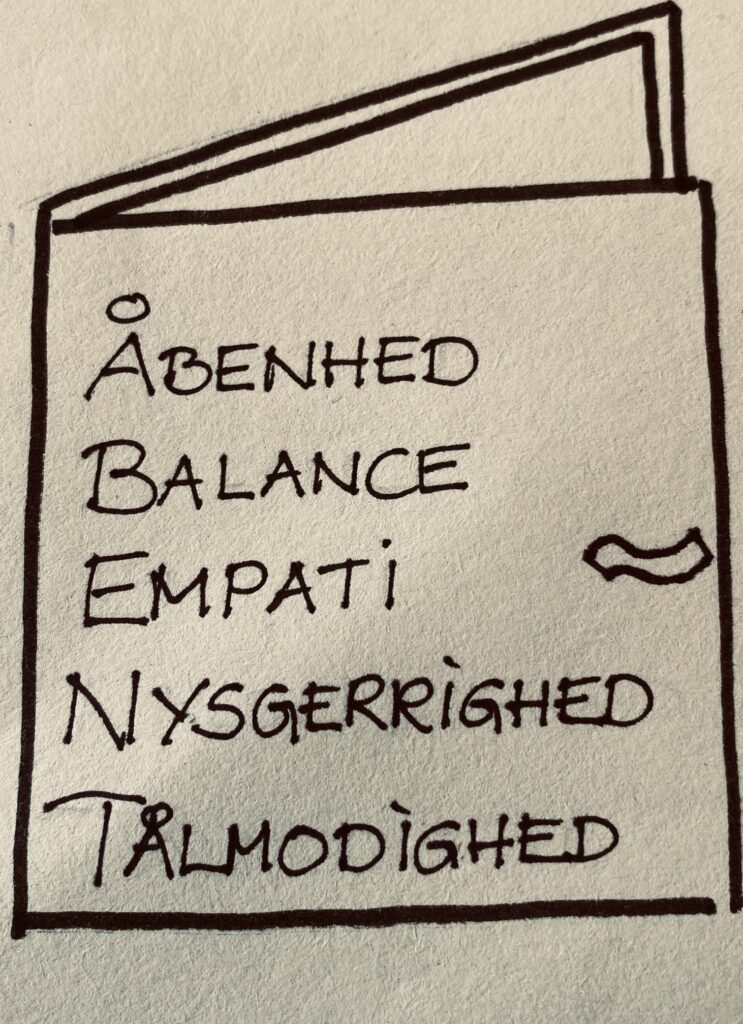 ÅBENHED
BALANCE
EMPATI
NYSGERRIGHED
TÅLMODIGHED